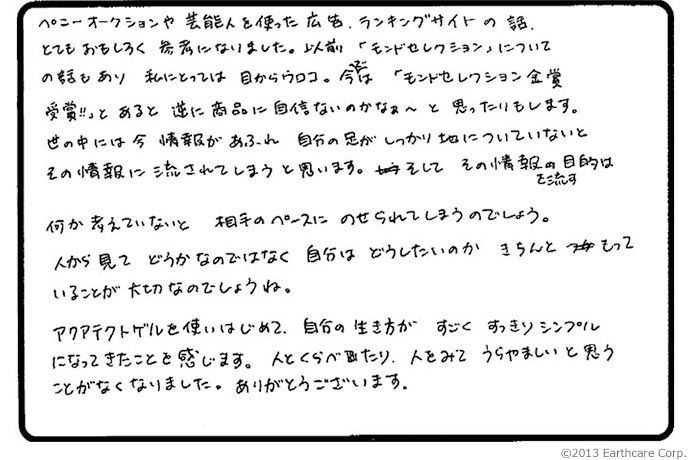 ペニーオークションや芸能人を使った広告、ランキングサイトの話、
とてもおもしろく参考になりました。以前「モンドセレクション」について
の話もあり 私にとっては目からウロコ。今では「モンドセレクション金賞
受賞!!」とあると逆に商品に自信ないのかなぁ〜と思ったりもします。
世の中には今情報があふれ 自分の足がしっかり地についていないと
その情報に流されてしまうと思います。そして その情報を流す目的は
何か考えていないと 相手のペースにのせられてしまうのでしょう。
人から見てどうかなのではなく自分はどうしたいのか きちんともって
いることが大切なのでしょうね。
アクアテクトゲルを使いはじめて、自分の生き方が すごく すっきりシンプル
になってきたことを感じます。人とくらべたり、人をみてうらやましいと思う
ことがなくなりました。ありがとうございます。
©2013 Earthcare Corp.